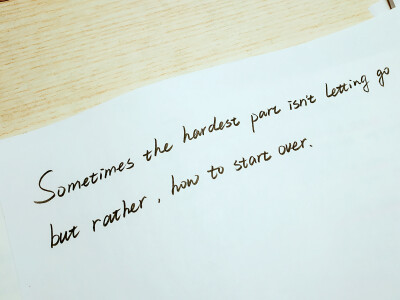 Sometimes the hardest part isn't letting go
but rather, how to start over.